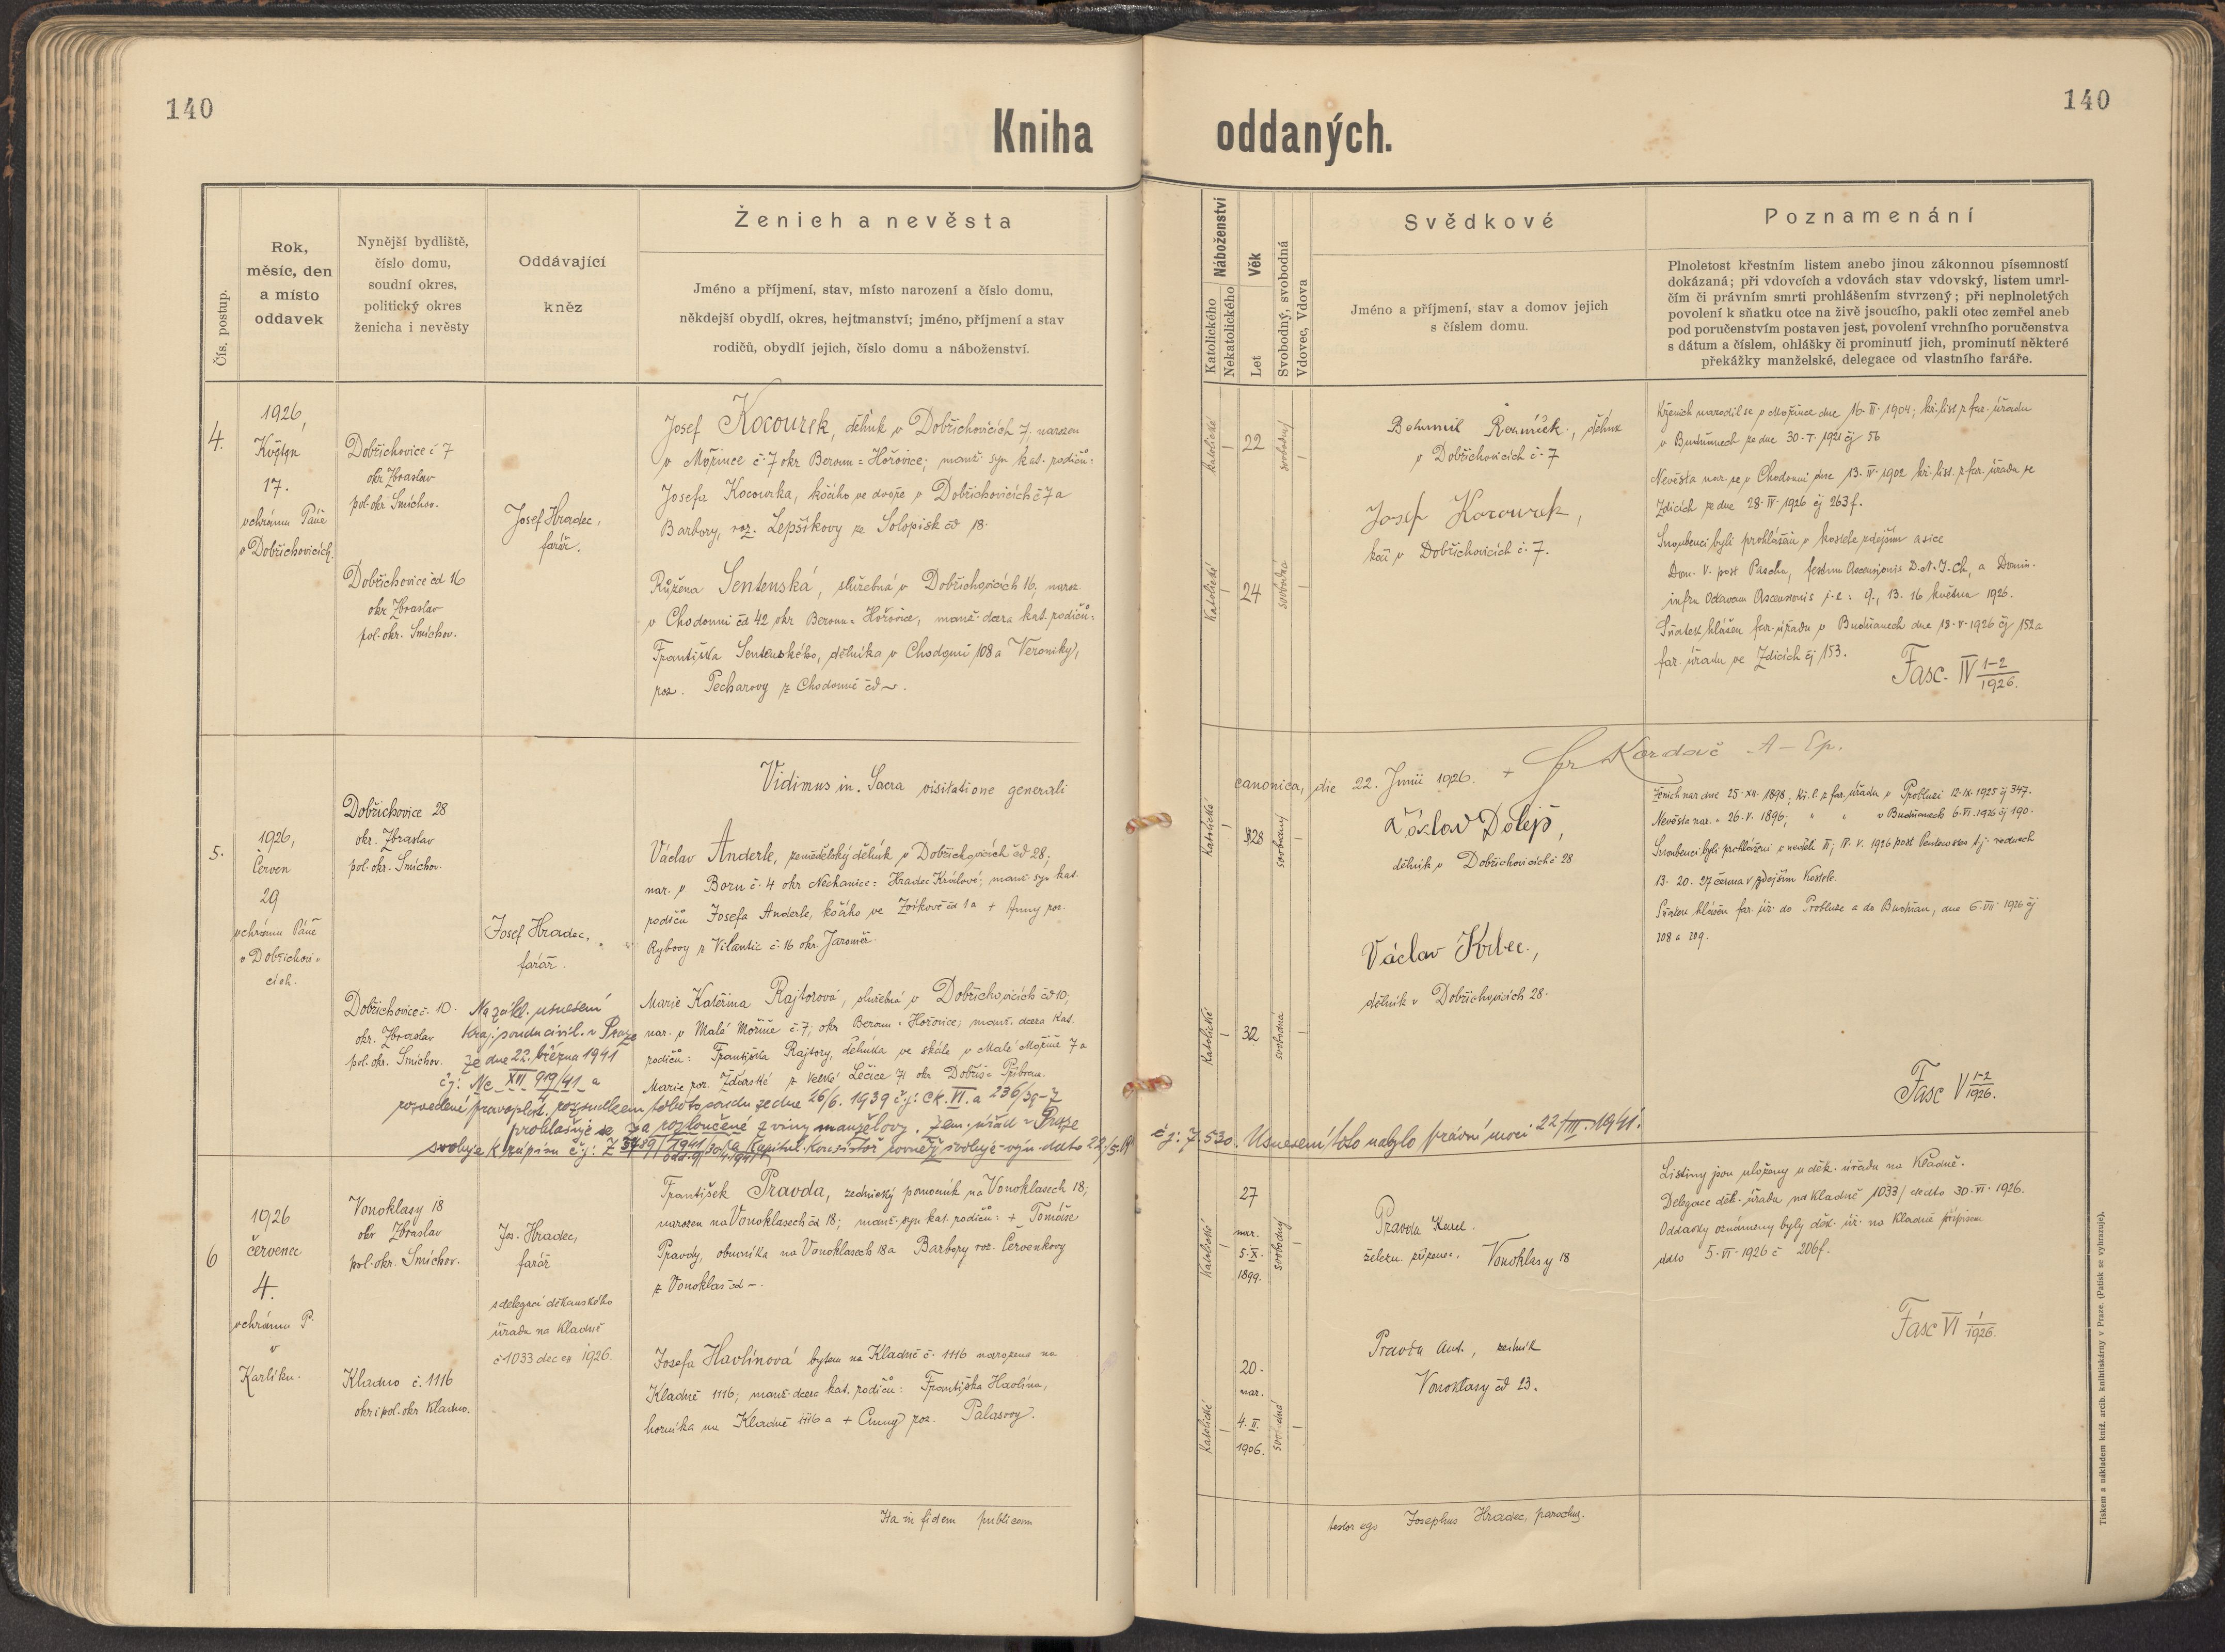 140
140
Kniha oddaných.
Čís. postup.
Rok,
měsíc, den
a místo
oddavek
Nynější bydliště,
číslo domu,
soudní okres,
politický okres
ženicha i nevěsty
Oddávající
kněz
Ženich a nevěsta
Jméno a příjmení, stav, místo narození a číslo domu,
někdejší obydlí, okres, hejtmanství; jméno, příjmení a stav
rodičů, obydlí jejich, číslo domu a náboženství.
Náboženství
Katolického
Nekatolického
Věk
Let
Svobodný, svobodná
Vdovec, Vdova
Svědkové
Jméno a příjmení, stav a domov jejich
s číslem domu.
Poznamenání
Plnoletost křestním listem anebo jinou zákonnou písemností
dokázaná; při vdovcích a vdovách stav vdovský, listem umrl-
čím či právním smrti prohlášením stvrzený; při neplnoletých
povolení k sňatku otce na živě jsoucího, pakli otec zemřel aneb
pod poručenstvím postaven jest, povolení vrchního poručenstva
s dátum a číslem, ohlášky či prominutí jich, prominutí některé
překážky manželské, delegace od vlastního faráře.
4.
1926,
Květen
17.
v chrámu Páně
v Dobřichovicích.
Dobřichovice č 7
okr Zbraslav
pol. okr Smíchov.
Dobřichovice čd 16
okr Zbraslav
pol. okr. Smíchov.
Josef Hradec,
farář.
Josef Kocourek, dělník v Dobřichovicích 7; narozen
v Mořince č. 7 okr Beroun = Hořovice; manž. syn kat. rodičů:
Josefa Kocourka, kočího ve dvoře v Dobřichovicích č 7 a
Barbory, roz. Lepšíkovy ze Solopisk čd 18.
Růžena Sentenská, služebná v Dobřichovicích 16, naroz.
v Chodouni čd 42 okr Beroun = Hořovice, manž. dcera kat. rodičů:
Františka Sentenského, dělníka v Chodouni 108 a Veroniky,
roz. Pecharovy z Chodouně čd
katolické
22
svobodný
Katolické
24
svobodná
Bohumil , dělník
v Dobřichovicích č. 7
Josef Kocourek,
kočí v Dobřichovicích č. 7.
Ženich narodil se v Mořince dne 16. II. 1904; kř. list z far. úřadu
v Budňanech ze dne 30. 1921 čj 56
Nevěsta nar. se v Chodouni dne 13. IV. 1902 kř. list. z far. úřadu ve
Zdicích ze dne 28. IV. 1926 čj 263 f.
Snoubenci byli prohlášeni v kostele zdejším a sice
Dom. V. post Pascha, festum Ascensionis D. N. J. Ch, a Domin.
infra Octavam Ascensionis j. e: 9., 13. 16 května 1926.
Sňatek hlášen far. úřadu v Budňanech dne 18. V. 1926 čj 152 a
far. úřadu ve Zdicích čj 153.
Fasc. IV 1-2/1926.
Vidimus in Sacra visitatione generali
canonica, die 22. Junii 1926. + Kordač A-Ep.
5.
1926,
Červen
29
v chrámu Páně
v Dobřichovi
cích.
Dobřichovice 28
okr. Zbraslav
pol. okr. Smíchov.
Dobřichovice č. 10.
okr. Zbraslav
pol. okr. Smíchov.
Josef Hradec,
farář.
Václav Anderle, zemědělský dělník v Dobřichovicích čd 28;
nar. v Boru č. 4 okr Nechanice = Hradec Králové; manž. syn kat.
rodičů Josefa Anderle, kočího ve čd 1 a + Anny roz.
Rybovy z Vilantic č. 16 okr. Jaroměř.
Marie Kateřina Rajtorová, služebná v Dobřichovicích čd 10;
nar. v Malé Mořině č. 7; okr Beroun = Hořovice; manž. dcera kat.
rodičů: Františka Rajtory, dělníka ve skále v Malé Mořině 7 a
Marie roz. Žďárské z Velké Lečice 71 okr Dobříš = Příbram.
Na zákl. usnesení
Kraj. soudu civil. v Praze
ze dne 22. března 1941
č j: Nc XII 919/41 a
rozvedené pravoplat. rozsudkem tohoto soudu ze dne 26/6. 1939 č j: Ck. VI. a 236/39-7
prohlašuje se za rozloučené z viny manželovy. Zem. úřad v Praze
svoluje k zápisu č. j: Kapitul. Konsistoř rovněž svoluje
č j: 7.530. Usnesení toto nabylo právní moci 22/III. 1941.
Katolické
28
svobodný
Katolické
32
svobodná
Václav Dolejš,
dělník v Dobřichovicích č 28
Václav Krbec,
dělník v Dobřichovicích 28.
Ženich nar dne 25. XII. 1898; kř. l. z far. úřadu v Probluzi 12. IX. 1925 čj 347.
Nevěsta nar. " 26. V. 1896; " " v Budňanech 6. VI. 1926 čj 190.
Snoubenci byli prohlášeni v neděli III; IV. V. 1926 post Pentecosten t. j. ve dnech
13. 20. 27 června v zdejším kostele.
Sňatek hlášen far. úř. do Probluze a do Budňan, dne 6. VII. 1926 čj
208 a 209.
Fasc V 1-2/1926.
6
1926
červenec
4.
v chrámu P.
v
Karlíku.
Vonoklasy 18
okr Zbraslav
pol. okr. Smíchov.
Kladno č. 1116
okr i pol. okr Kladno.
Jos. Hradec,
farář
s delegací děkanského
úřadu na Kladně
č 1033 1926.
František Pravda, zednický pomocník na Vonoklasech 18;
narozen na Vonoklasech čd 18; manž. syn kat. rodičů: + Tomáše
Pravdy, obuvníka na Vonoklasech 18 a Barbory roz. Červenkovy
z Vonoklas čd -.
Josefa Havlínová bytem na Kladně č. 1116 narozena na
Kladně 1116; manž. dcera kat. rodičů: Františka Havlína,
horníka na Kladně 1116 a + Anny roz. Palasovy.
Katolické
27
nar.
5. XI.
1899.
svobodný
Katolické
20.
nar.
4. II.
1906.
svobodná
Pravda Karel.
železn. zřízenec. Vonoklasy 18
Pravda Ant., zedník
Vonoklasy čd 23.
Listiny jsou uloženy u děk. úřadu na Kladně.
Delegace děk. úřadu na Kladně 1033/ de dto 30. VI. 1926.
Oddavky oznámeny byly děk. úř. na Kladně přípisem
dato 5. VI. 1926 č 206 f.
Fasc VI 1/1926.
Ita in fidem publicam
testor ego Josephus Hradec, parochus.
Tiskem a nákladem kníž. arcib. knihtiskárny v Praze. (Patisk se vyhrazuje).